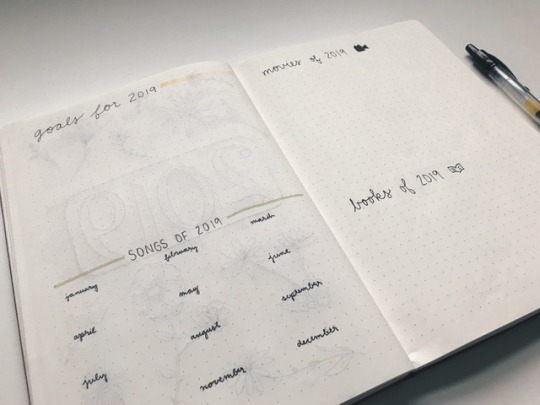 goals for 2019
SONGS OF 2019
january february march
april may june
july august september
november december
movies of 2019
books of 2019